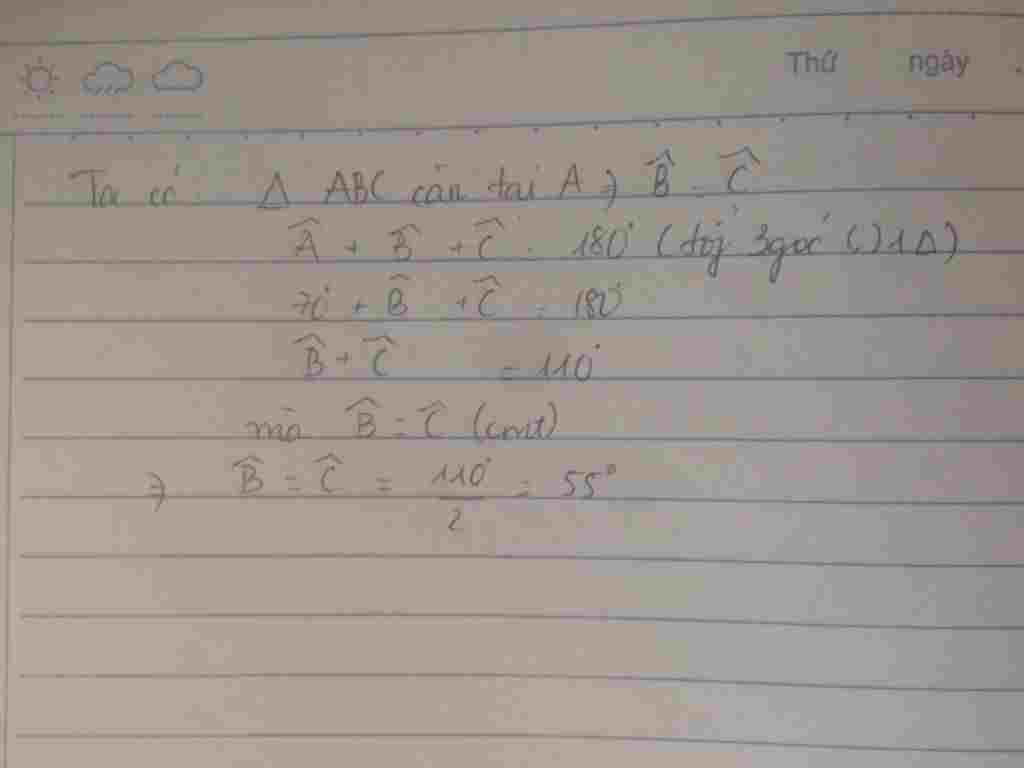 Thứ ngày
Ta có: Δ ABC cân tại A ⇒ B̂ = Ĉ
Â + B̂ + Ĉ = 180° (đ/lý 3 góc () 1 Δ)
70° + B̂ + Ĉ = 180°
B̂ + Ĉ = 110°
mà B̂ = Ĉ (cmt)
⇒ B̂ = Ĉ = 110°/2 = 55°